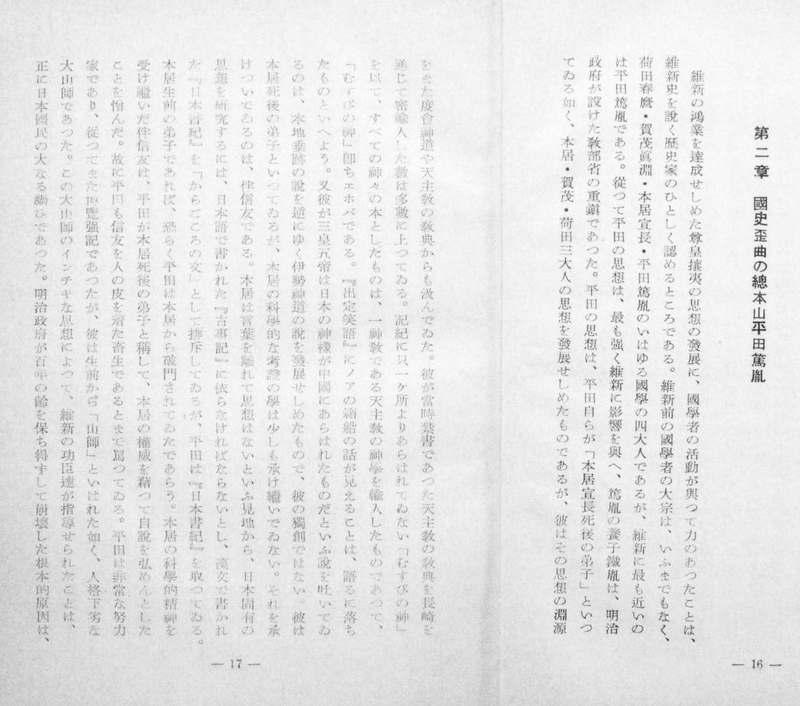 第二章　國史歪曲の總本山平田篤胤
維新の鴻業を達成せしめた尊皇攘夷の思想の發展に、國學者の活動が與つて力のあつたことは、
維新史を說く歷史家のひとしく認めるところである。維新前の國學者の大宗は、いふまでもなく、
荷田春麿・賀茂眞淵・本居宣長・平田篤胤のいはゆる國學の四大人であるが、維新に最も近いの
は平田篤胤である。從つて平田の思想は、最も強く維新に影響を與へ、篤胤の養子鐵胤は、明治
政府が設けた敎部省の重鎭であつた。平田の思想は、平田自らが「本居宣長死後の弟子」といつ
てゐる如く、本居・賀茂・荷田三大人の思想を發展せしめたものであるが、彼はその思想の淵源
— 16 —
をまた度會神道や天主敎の敎典からも汲んでゐた。彼が當時禁書であつた天主敎の敎典を長崎を
通じて密輸入した數は多數に上つてゐる。記紀に只一ヶ所よりあらはれてゐない「むすびの神」
を以て、すべての神々の本としたものは、一神敎である天主敎の神學を輸入したものであつて、
「むすびの神」卽ちエホバである。『出定笑語』にノアの箱船の話が見えることは、語るに落ち
たものといへよう。又彼が三皇五帝は日本の神樣が中國にあらはれたものだといふ說を吐いてゐ
るのは、本地垂跡の說を逆にゆく伊勢神道の說を發展せしめたもので、彼の獨創ではない。彼は
本居死後の弟子といつてゐるが、本居の科學的な考證の學は少しも承け繼いでゐない。それを承
けついでゐるのは、伴信友である。本居は言葉を離れて思想はないといふ見地から、日本固有の
思想を硏究するには、日本語で書かれた『古事記』に依らなければならないとし、漢文で書かれ
た『日本書紀』を「からごころの文」として排斥してゐるが、平田は『日本書紀』を取つてゐる。
本居生前の弟子であれば、恐らく平田は本居から破門されてゐたであらう。本居の科學的精神を
受け繼いだ伴信友は、平田が本居死後の弟子と稱して、本居の權威を藉つて自說を弘めんとした
ことを憎んだ。故に平田も信友を人の皮を着た畜生であるとまで罵つてゐる。平田は非常な努力
家であり、從つてまた博覽強記であつたが、彼は生前から「山師」といはれた如く、人格下劣な
大山師であつた。この大山師のインチキな思想によつて、維新の功臣達が指導せられたことは、
正に日本國民の大なる禍ひであつた。明治政府が百年の齡を保ち得ずして崩壞した根本的原因は、
— 17 —